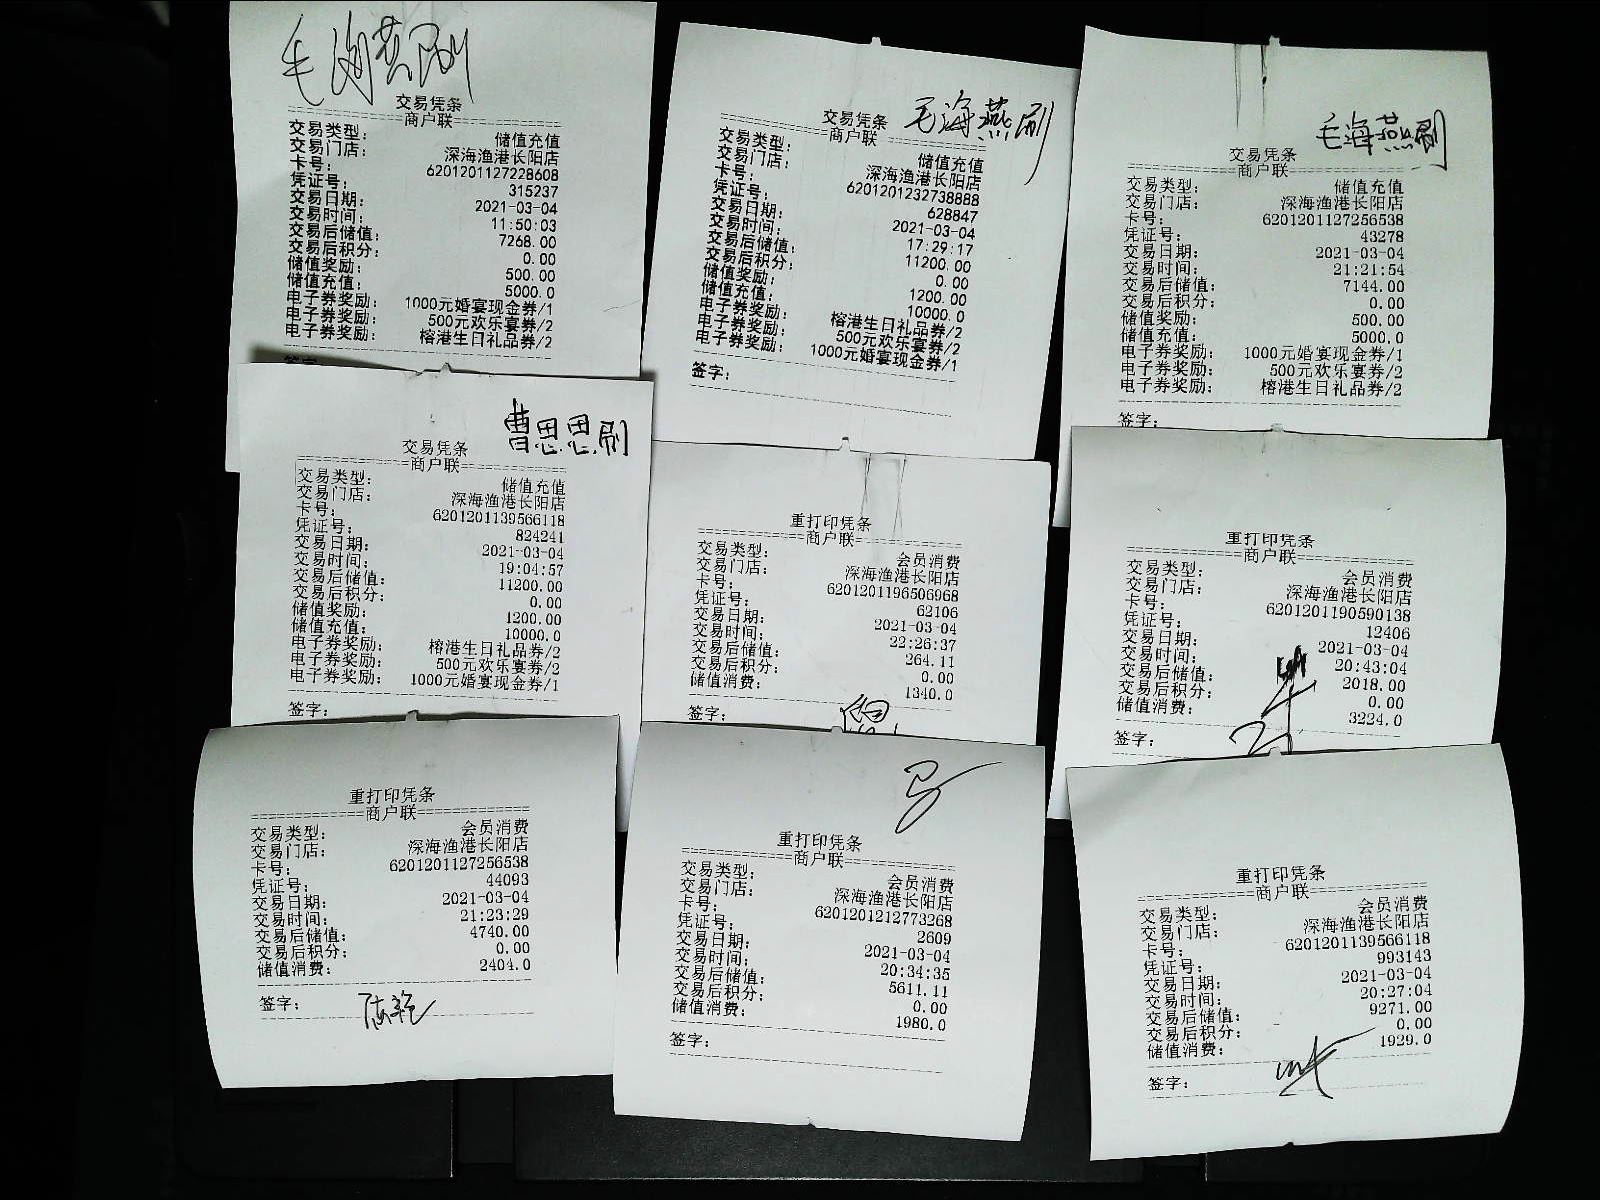 毛海燕刷
交易凭条
商户联
交易类型: 储值充值
交易门店: 深海渔港长阳店
卡号: 6201201127228608
凭证号: 315237
交易日期: 2021-03-04
交易时间: 11:50:03
交易后储值: 7268.00
交易后积分: 0.00
储值奖励: 500.00
储值充值: 5000.0
电子券奖励: 1000元婚宴现金券/1
电子券奖励: 500元欢乐宴券/2
电子券奖励: 榕港生日礼品券/2
毛海燕刷
交易凭条
商户联
交易类型: 储值充值
交易门店: 深海渔港长阳店
卡号: 6201201232738888
凭证号: 628847
交易日期: 2021-03-04
交易时间: 17:29:17
交易后储值: 11200.00
交易后积分: 0.00
储值奖励: 1200.00
储值充值: 10000.0
电子券奖励: 榕港生日礼品券/2
电子券奖励: 500元欢乐宴券/2
电子券奖励: 1000元婚宴现金券/1
签字:
毛海燕刷
交易凭条
商户联
交易类型: 储值充值
交易门店: 深海渔港长阳店
卡号: 6201201127256538
凭证号: 43278
交易日期: 2021-03-04
交易时间: 21:21:54
交易后储值: 7144.00
交易后积分: 0.00
储值奖励: 500.00
储值充值: 5000.0
电子券奖励: 1000元婚宴现金券/1
电子券奖励: 500元欢乐宴券/2
电子券奖励: 榕港生日礼品券/2
签字:
曹思思刷
交易凭条
商户联
交易类型: 储值充值
交易门店: 深海渔港长阳店
卡号: 6201201139566118
凭证号: 824241
交易日期: 2021-03-04
交易时间: 19:04:57
交易后储值: 11200.00
交易后积分: 0.00
储值奖励: 1200.00
储值充值: 10000.0
电子券奖励: 榕港生日礼品券/2
电子券奖励: 500元欢乐宴券/2
电子券奖励: 1000元婚宴现金券/1
签字:
重打印凭条
商户联
交易类型: 会员消费
交易门店: 深海渔港长阳店
卡号: 6201201196506968
凭证号: 62106
交易日期: 2021-03-04
交易时间: 22:26:37
交易后储值: 264.11
交易后积分: 0.00
储值消费: 1340.0
签字:
重打印凭条
商户联
交易类型: 会员消费
交易门店: 深海渔港长阳店
卡号: 6201201190590138
凭证号: 12406
交易日期: 2021-03-04
交易时间: 20:43:04
交易后储值: 2018.00
交易后积分: 0.00
储值消费: 3224.0
签字:
重打印凭条
商户联
交易类型: 会员消费
交易门店: 深海渔港长阳店
卡号: 6201201127256538
凭证号: 44093
交易日期: 2021-03-04
交易时间: 21:23:29
交易后储值: 4740.00
交易后积分: 0.00
储值消费: 2404.0
签字:
重打印凭条
商户联
交易类型: 会员消费
交易门店: 深海渔港长阳店
卡号: 6201201212773268
凭证号: 2609
交易日期: 2021-03-04
交易时间: 20:34:35
交易后储值: 5611.11
交易后积分: 0.00
储值消费: 1980.0
签字:
重打印凭条
商户联
交易类型: 会员消费
交易门店: 深海渔港长阳店
卡号: 6201201139566118
凭证号: 993143
交易日期: 2021-03-04
交易时间: 20:27:04
交易后储值: 9271.00
交易后积分: 0.00
储值消费: 1929.0
签字: